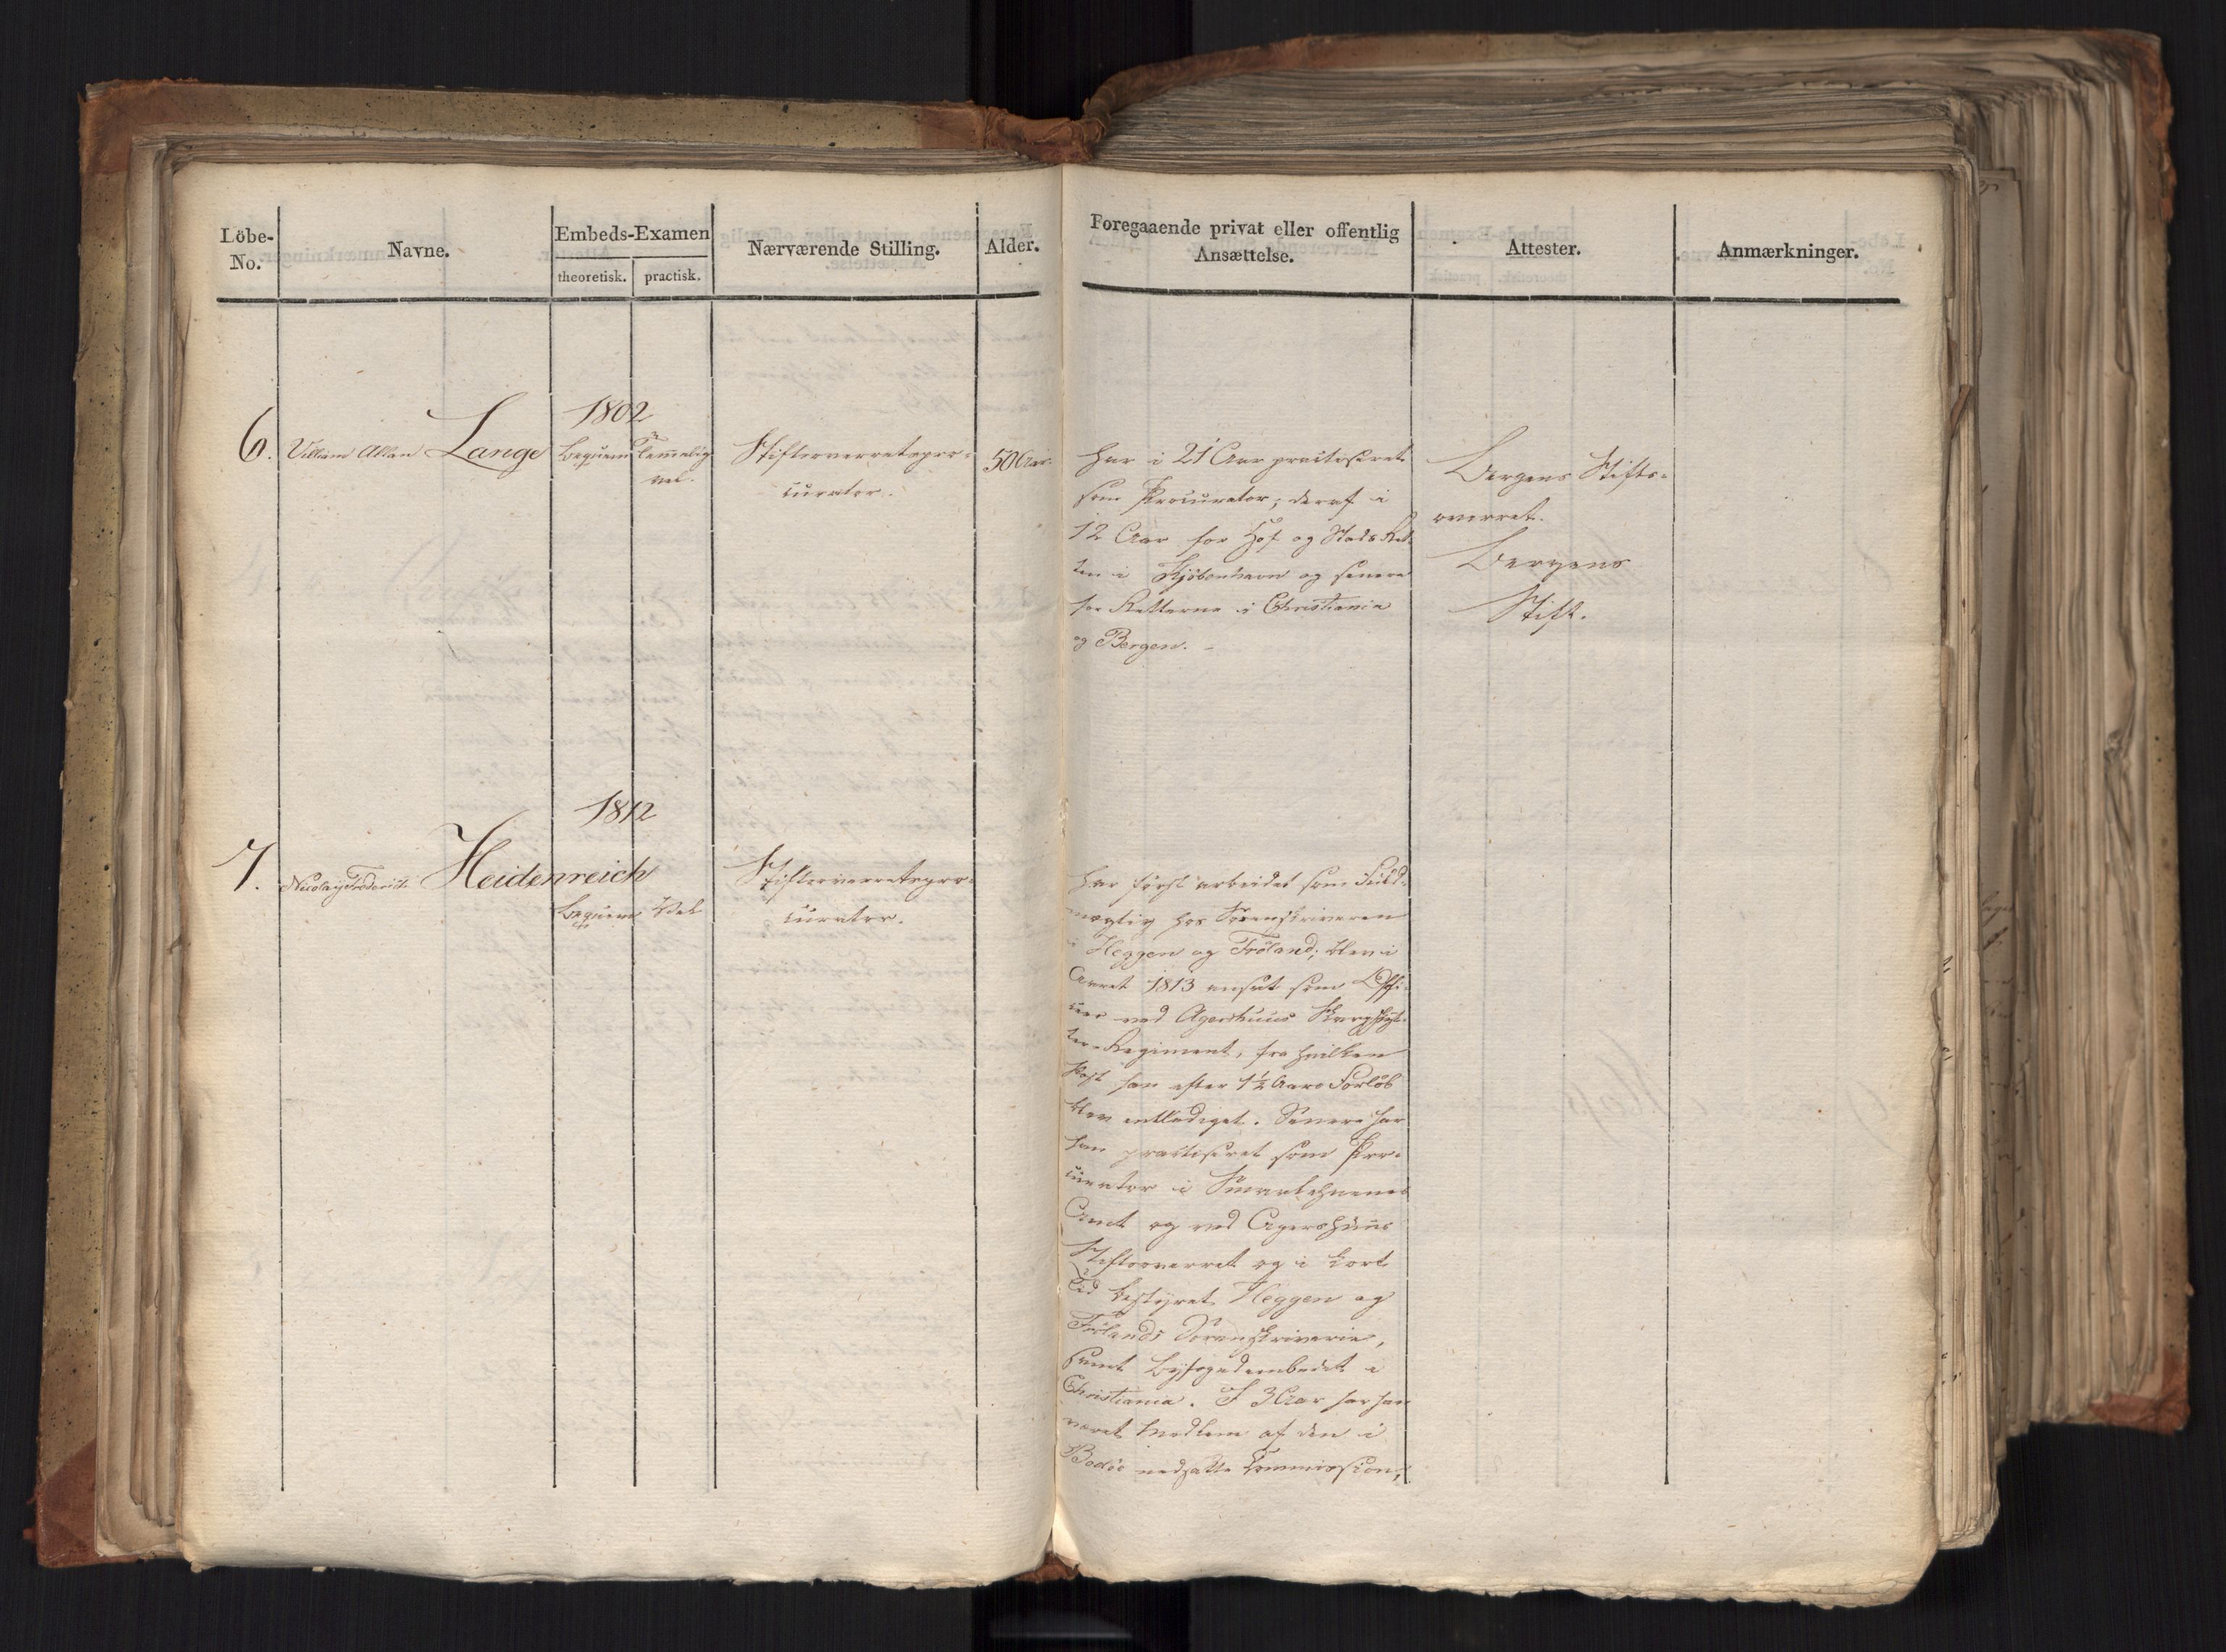 Löbe-
No.
Navne.
Embeds-Examen
theoretisk. practisk.
Nærværende Stilling.
Alder.
Foregaaende privat eller offentlig
Ansættelse.
Attester.
Anmærkninger.
1802
6. William Allan Lange Beqvem Temmelig
vel.
Stiftsoverretspro-
curator.
50 Aar.
Har i 21 Aar practiseret
som Procurator; deraf i
12 Aar for Hof og Stads Ret-
ten i Kjöbenhavn og senere
for Retterne i Christiania
og Bergen.
Bergens Stifts-
overret.
Bergens
Stift.
1812
7. Nicolay Frederich Heidenreich
Beqvem Vel
Stiftsoverretspro-
curator.
Har först arbeidet som Fuld-
mægtig hos Sorenskriveren
i Heggen og Fröland; blev i
Aaret 1813 ansat som Offi-
cier ved Agershuus Skarpskyt-
ter-Regiment, fra hvilken
Post han efter 1½ Aars Forlöb
blev entlediget. Senere har
han practiseret som Pro-
curator i Smaalehnenes
Amt og ved Agershuus
Stiftsoverret og i kort
Tid bestyret Heggen og
Frölands Sorenskriverie,
samt Byfogedembedet i
Christiania. I 3 Aar har han
været Medlem af den i
Bodöe nedsatte Commission,